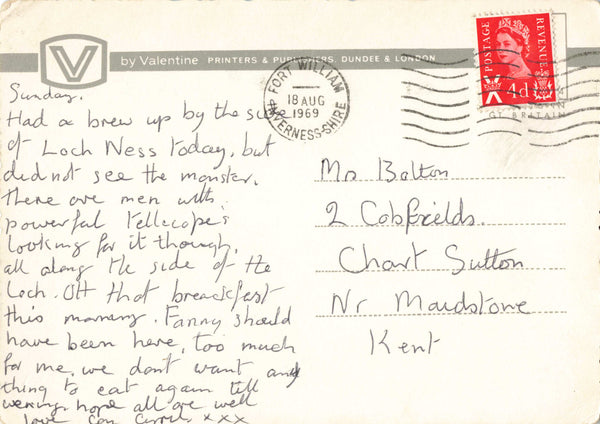 by Valentine PRINTERS & PUBLISHERS, DUNDEE & LONDON
POSTAGE
REVENUE
4d
GT BRITAIN
FORT WILLIAM
18 AUG
1969
INVERNESS-SHIRE
Sunday.
Had a brew up by the side
of Loch Ness today, but
did not see the monster.
There are men with
powerful tellecope's
looking for it though,
all along the side of the
Loch. Oh that breackfast
this morning. Fanny should
have been here, too much
for me, we don't want any
thing to eat again till
evening, hope all are well
love Con xxx
Mrs Bolton
2 Cobfields.
Chart Sutton
Nr Maidstone
Kent